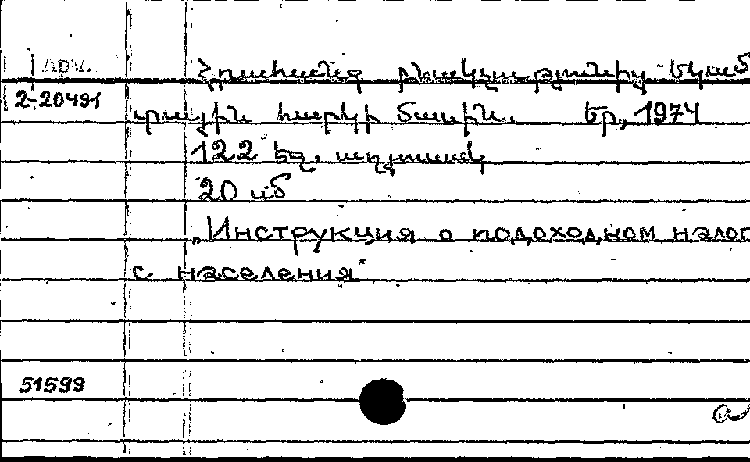 Հրահանգ բնակչությունից եկամ
2-20491
տային հարկի մասին. Եր, 1974
122 եջ. աղյուսակ
20 սմ
„Инструкция о подоходном налог
с населения"
51599